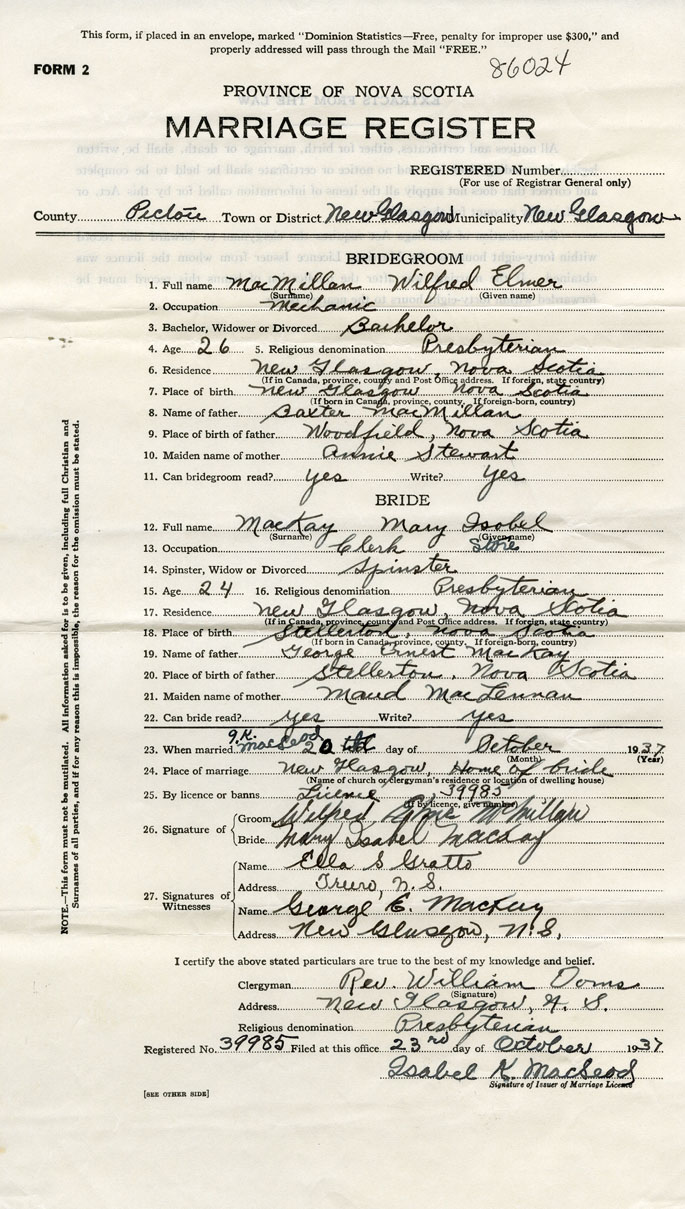 This form, if placed in an envelope, marked "Dominion Statistics—Free, penalty for improper use $300," and
properly addressed will pass through the Mail "FREE."
FORM 2
86024
PROVINCE OF NOVA SCOTIA
MARRIAGE REGISTER
REGISTERED Number
(For use of Registrar General only)
County Pictou Town or District New Glasgow Municipality New Glasgow
BRIDEGROOM
1. Full name MacMillan Wilfred Elmer
(Surname) (Given name)
2. Occupation Mechanic
3. Bachelor, Widower or Divorced Bachelor
4. Age 26 5. Religious denomination Presbyterian
6. Residence New Glasgow, Nova Scotia
(If in Canada, province, county and Post Office address. If foreign, state country)
7. Place of birth New Glasgow Nova Scotia
(If born in Canada, province, county. If foreign-born, country)
8. Name of father Baxter MacMillan
9. Place of birth of father Woodfield, Nova Scotia
10. Maiden name of mother Annie Stewart
11. Can bridegroom read? yes Write? yes
BRIDE
12. Full name MacKay Mary Isobel
(Surname) (Given name)
13. Occupation Clerk Store
14. Spinster, Widow or Divorced Spinster
15. Age 24 16. Religious denomination Presbyterian
17. Residence New Glasgow, Nova Scotia
(If in Canada, province, county and Post Office address. If foreign, state country)
18. Place of birth Stellerton, Nova Scotia
(If born in Canada, province, county. If foreign-born, country)
19. Name of father George Ernest MacKay
20. Place of birth of father Stellerton, Nova Scotia
21. Maiden name of mother Maud MacLennan
22. Can bride read? yes Write? yes
MacLeod
23. When married 20 day of October 1937
(Month) (Year)
24. Place of marriage New Glasgow, Home of bride
(Name of church or clergyman's residence or location of dwelling house)
25. By licence or banns Licence, 39985
(If by licence, give number)
26. Signature of
Groom Wilfred McMillan
Bride Mary Isabel MacKay
27. Signatures of Witnesses
Name Ella S Gratto
Address Truro, N.S.
Name George E. MacKay
Address New Glasgow, N.S.
I certify the above stated particulars are true to the best of my knowledge and belief.
Clergyman Rev. William Ooms
(Signature)
Address New Glasgow, N. S.
Religious denomination Presbyterian
Registered No. 39985 Filed at this office 23rd day of October 1937
Isabel K. MacLeod
Signature of Issuer of Marriage Licence
[SEE OTHER SIDE]
NOTE.—This form must not be mutilated. All information asked for is to be given, including full Christian and
Surnames of all parties, and if for any reason this is impossible, the reason for the omission must be stated.